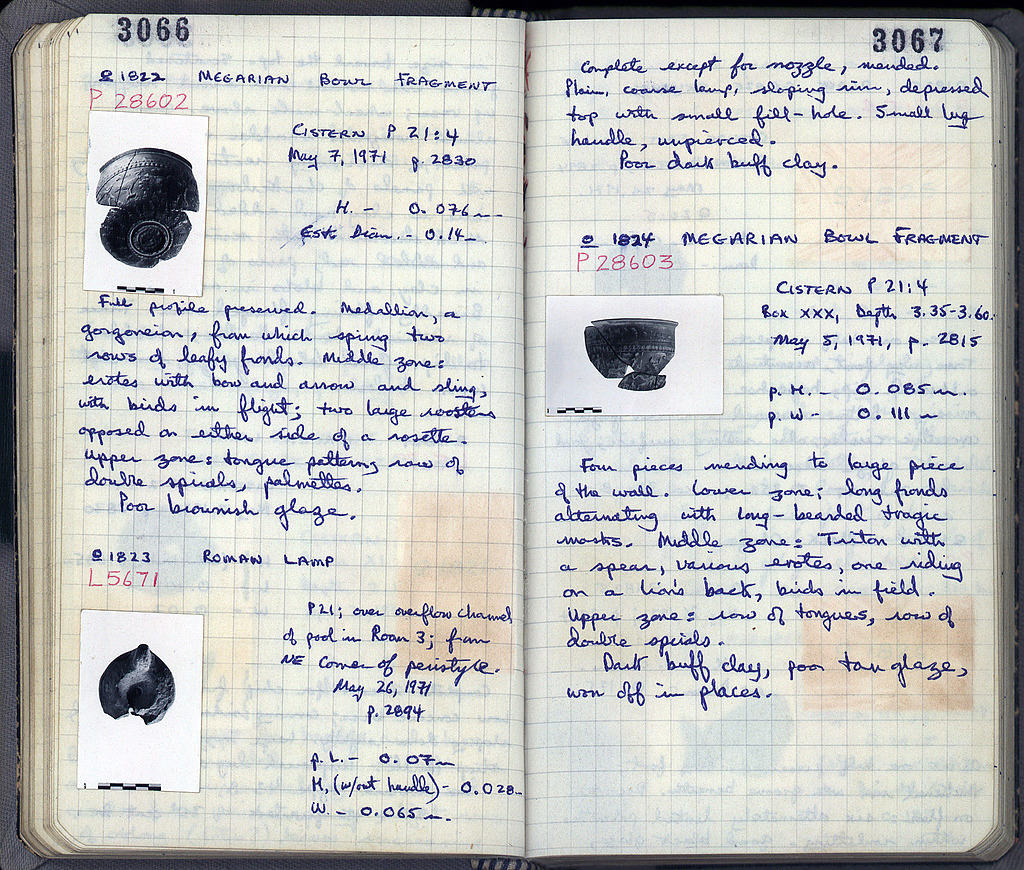 3066
Ω 1822 MEGARIAN BOWL FRAGMENT
P 28602
CISTERN P 21:4
May 7, 1971 p. 2830
H. - 0.076 m
Est. Diam. - 0.14 m.
Full profile preserved. Medallion, a
gorgoneion, from which spring two
rows of leafy fronds. Middle zone:
erotes with bow and arrow and sling,
with birds in flight; two large roosters
opposed on either side of a rosette.
Upper zone: tongue pattern, row of
double spirals, palmettes.
Poor brownish glaze.
Ω 1823 ROMAN LAMP
L5671
P21; over overflow channel
of pool in Room 3; from
NE corner of peristyle.
May 26, 1971
p. 2894
p. L. - 0.07 m
H. (w/out handle) - 0.028 m
W. - 0.065 m.
3067
Complete except for nozzle, mended.
Plain, coarse lamp, sloping rim, depressed
top with small fill-hole. Small lug
handle, unpierced.
Poor dark buff clay.
Ω 1824 MEGARIAN BOWL FRAGMENT
P 28603
CISTERN P 21:4
Box XXX, Depth 3.35-3.60.
May 5, 1971, p. 2815
p. H. - 0.085 m.
p. W - 0.111 m
Four pieces mending to large piece
of the wall. Lower zone: long fronds
alternating with long-bearded tragic
masks. Middle zone: Triton with
a spear, various erotes, one riding
on a lion's back, birds in field.
Upper zone: row of tongues, row of
double spirals.
Dark buff clay, poor tan glaze,
worn off in places.